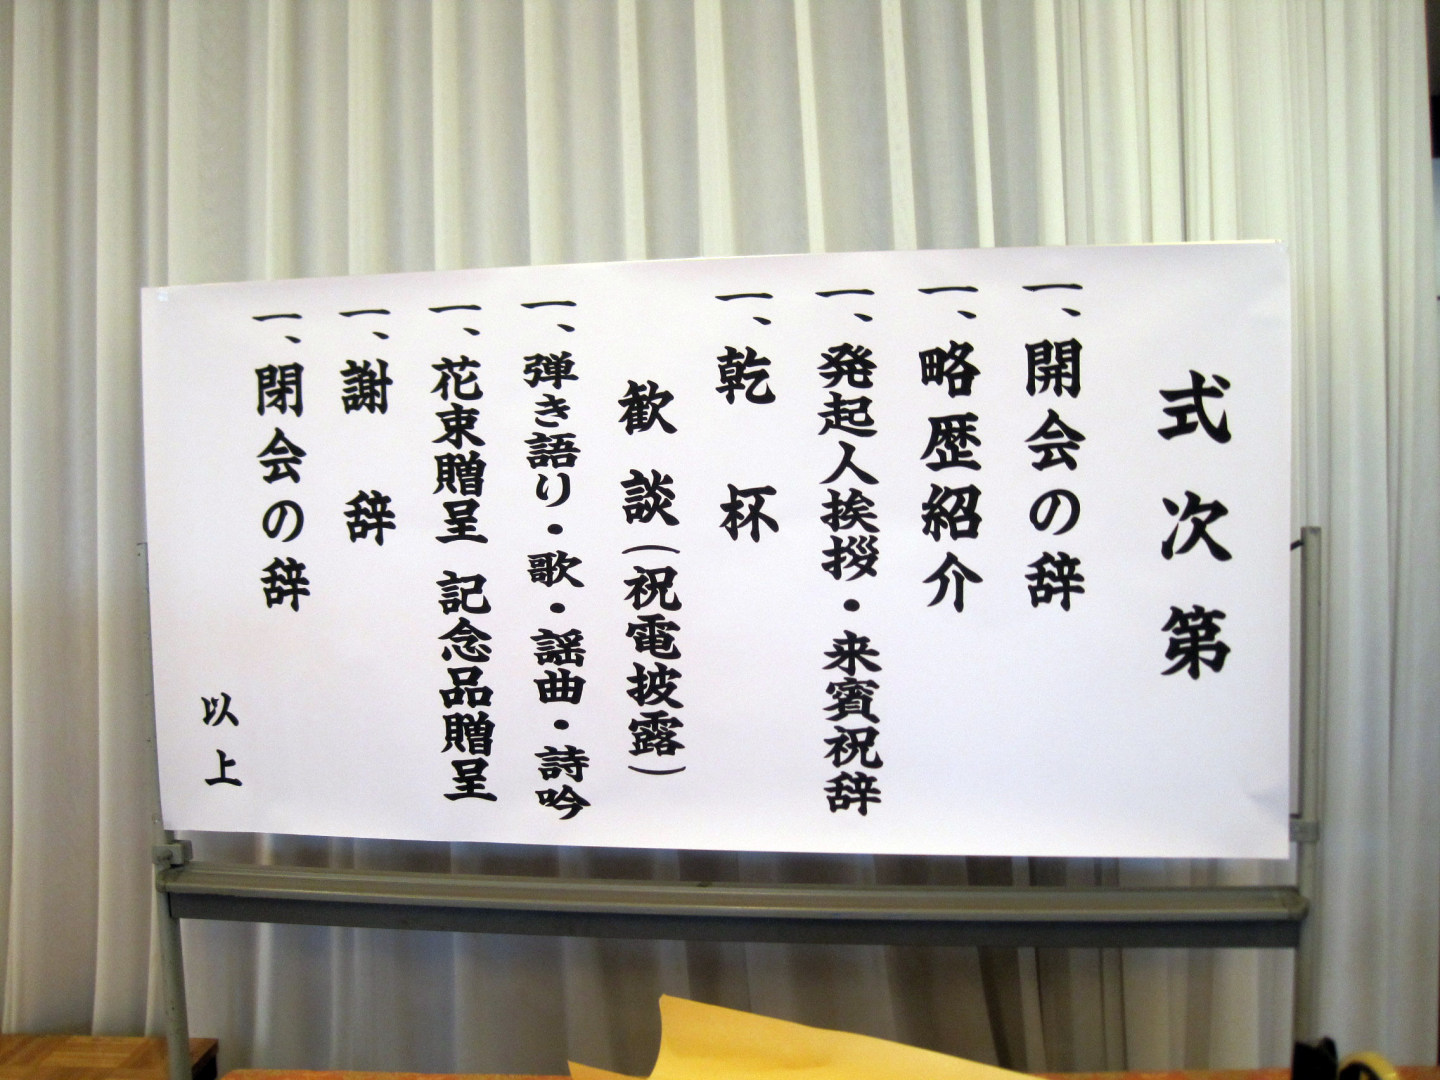 式次第
一、開会の辞
一、略歴紹介
一、発起人挨拶・来賓祝辞
一、乾杯
歓談(祝電披露)
一、弾き語り・歌・謡曲・詩吟
一、花束贈呈 記念品贈呈
一、謝辞
一、閉会の辞
以上